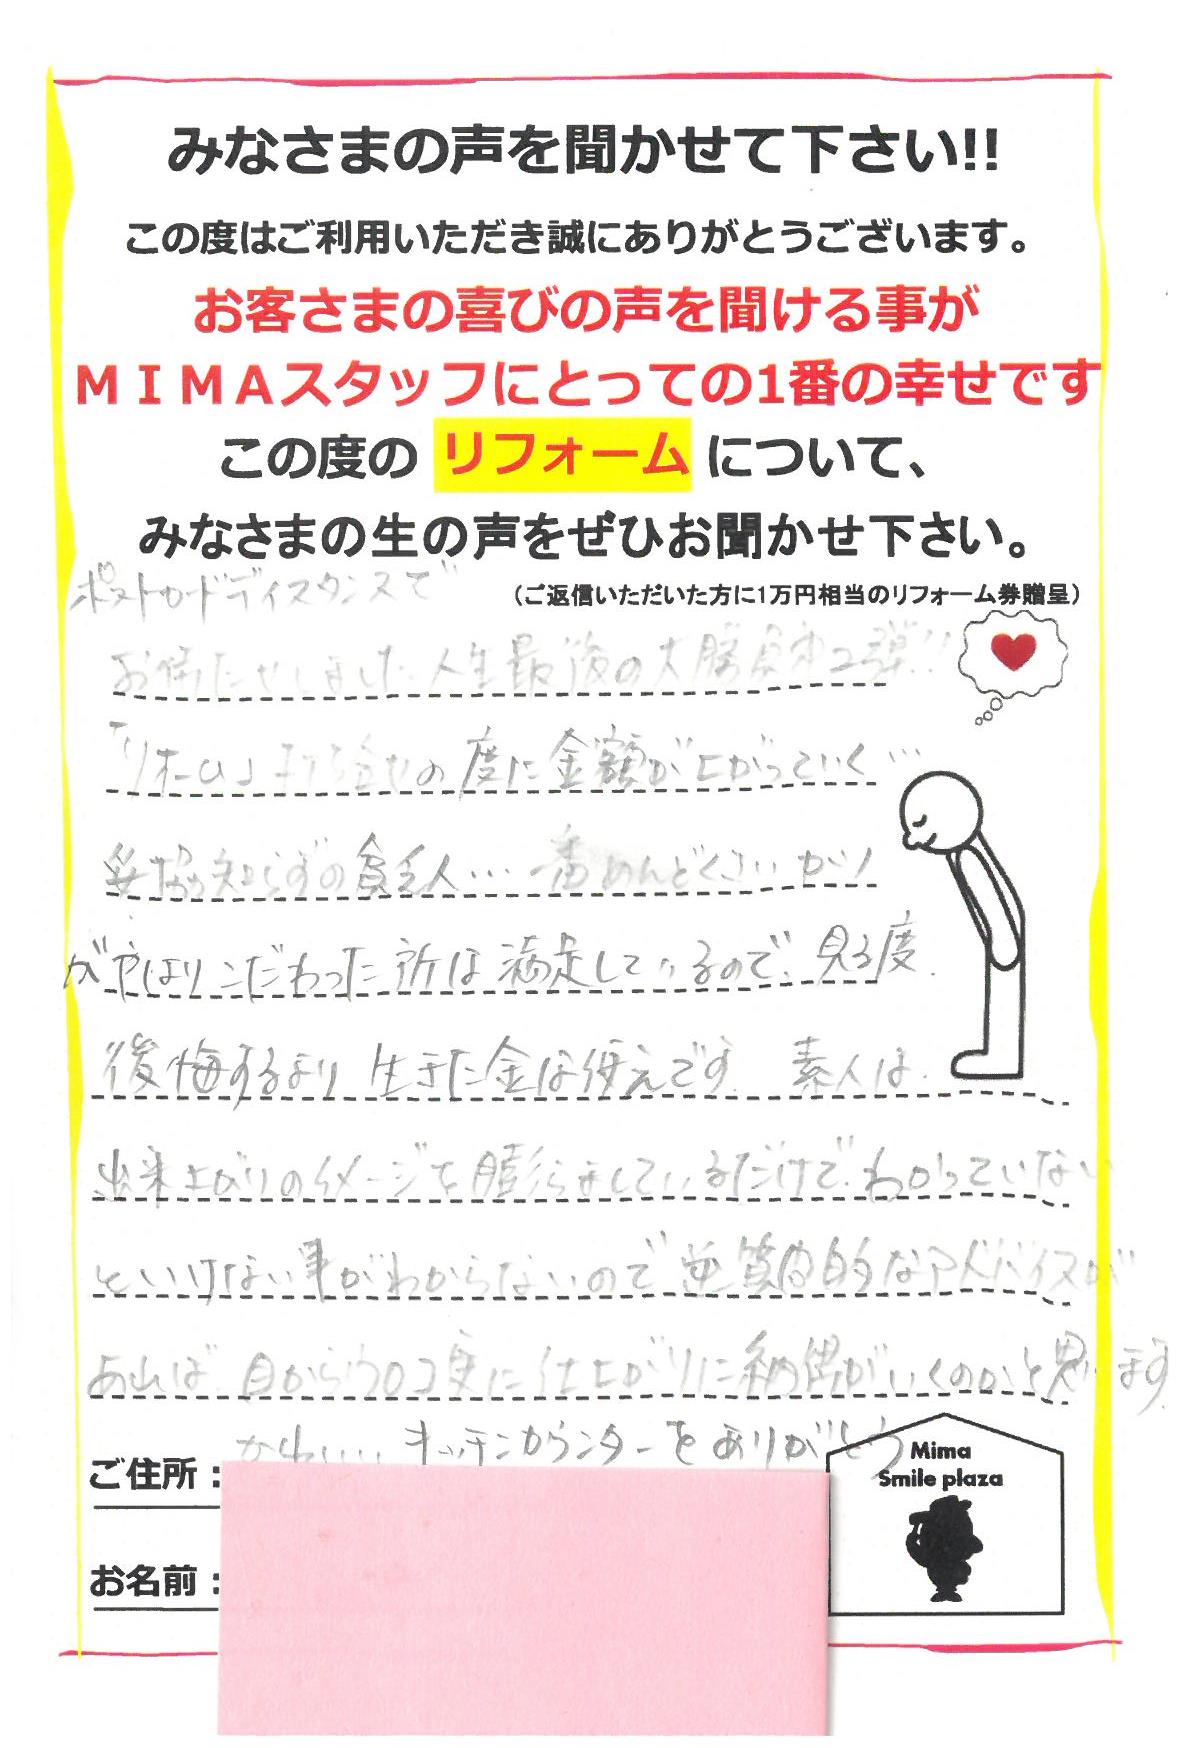 みなさまの声を聞かせて下さい!!
この度はご利用いただき誠にありがとうございます。
お客さまの喜びの声を聞ける事が
MIMAスタッフにとっての1番の幸せです
この度の リフォーム について、
みなさまの生の声をぜひお聞かせ下さい。
ポストカードディスタンスで
(ご返信いただいた方に1万円相当のリフォーム券贈呈)
お待たせしました。人生最後の大勝負第2弾!!
の度に金額が上がっていく…
妥協知らずの貧乏人… 番めんどくさいが!
がやはりこだわった所は満足しているので、見る度
後悔するより生きた金は使えです。素人は
出来上がりのイメージを膨らましているだけで、わかっていない
といけない事がわからないので逆質問的なアドバイスが
あれば 度に仕上がりに納得がいくのかと思います
かわいい、キッチンカウンターをありがとう
ご住所:
お名前:
Mima
Smile plaza